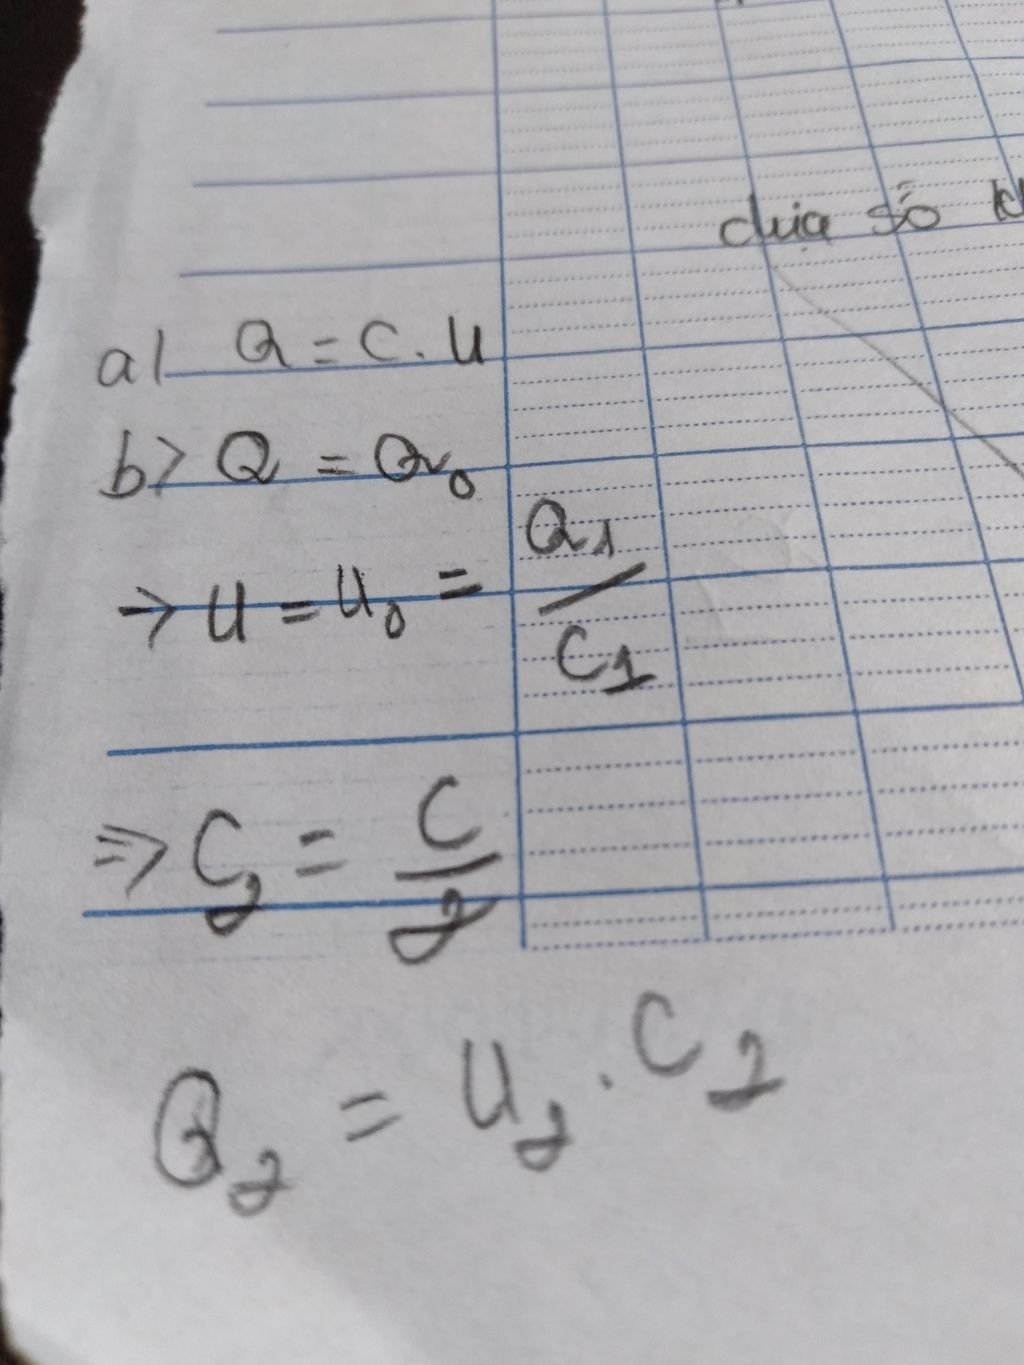 chia số
a) Q = C. U
b> Q = Q₀
→ U = U₀ = Q₁ / C₁
⇒ C₂ = C / 2
Q₂ = U₂ . C₂